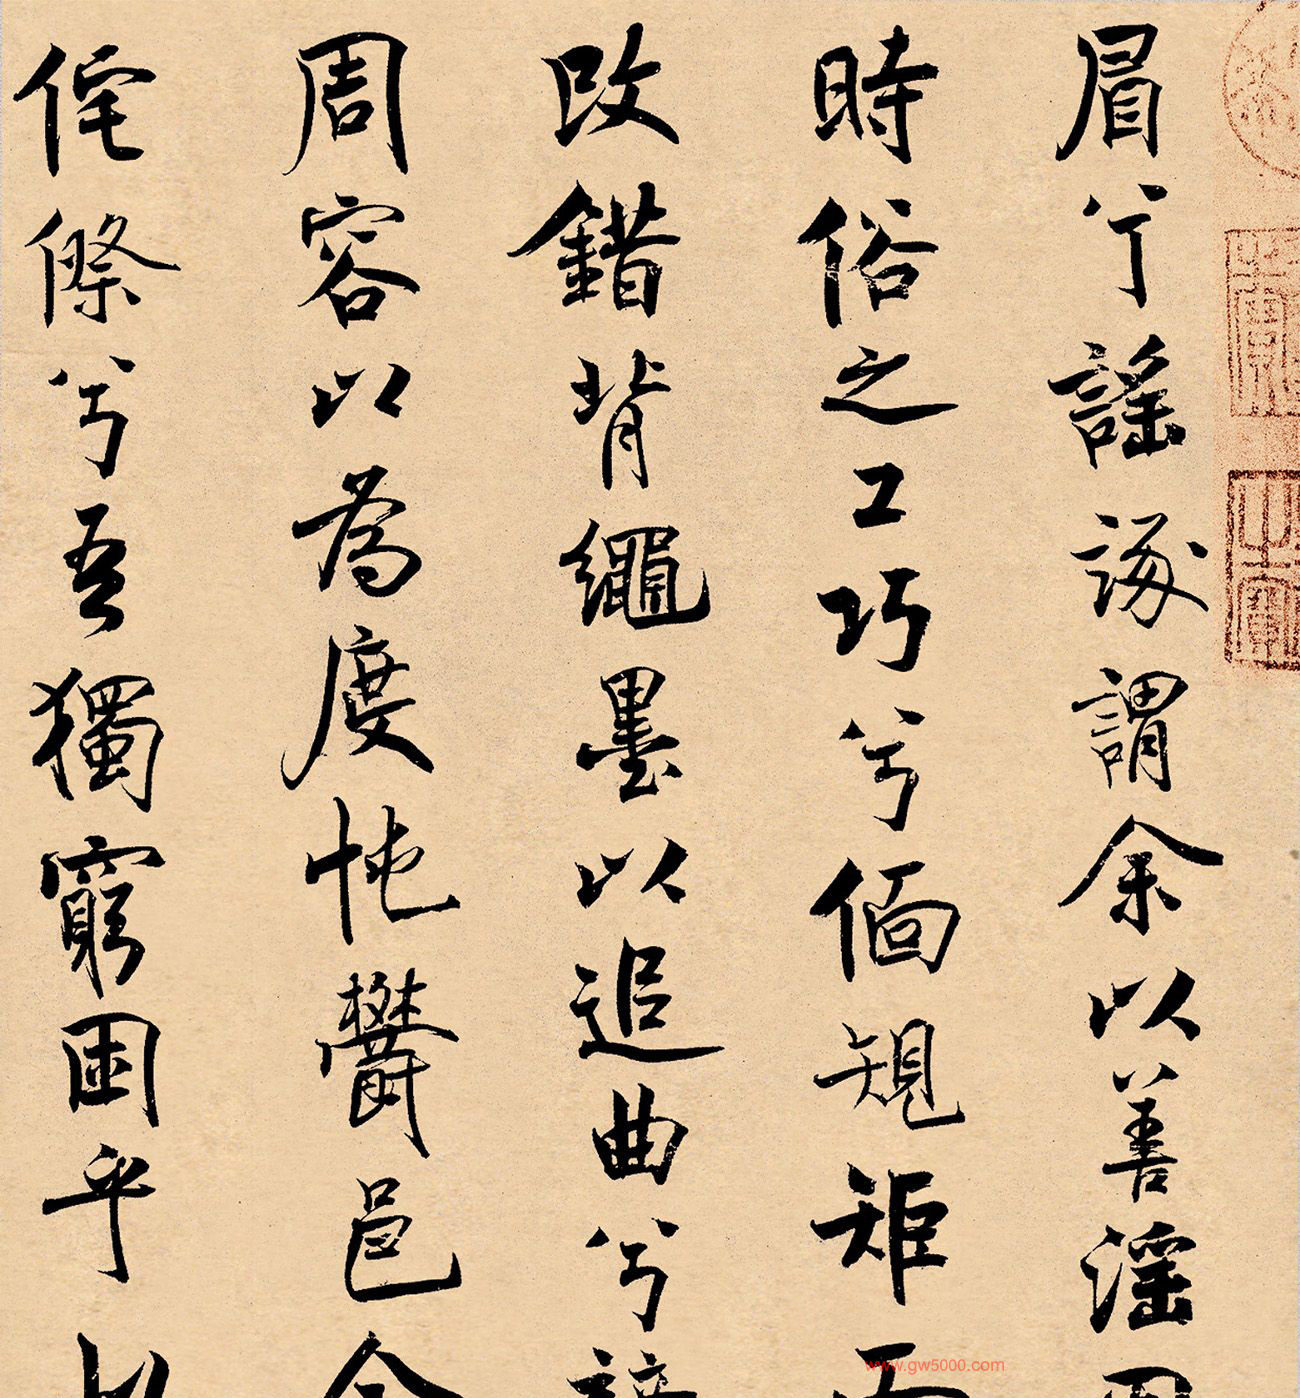 眉兮謡諑謂余以善淫
時俗之工巧兮偭規矩而
改錯背繩墨以追曲兮
周容以為度忳鬱邑
侘傺兮吾獨窮困乎
www.gw5000.com